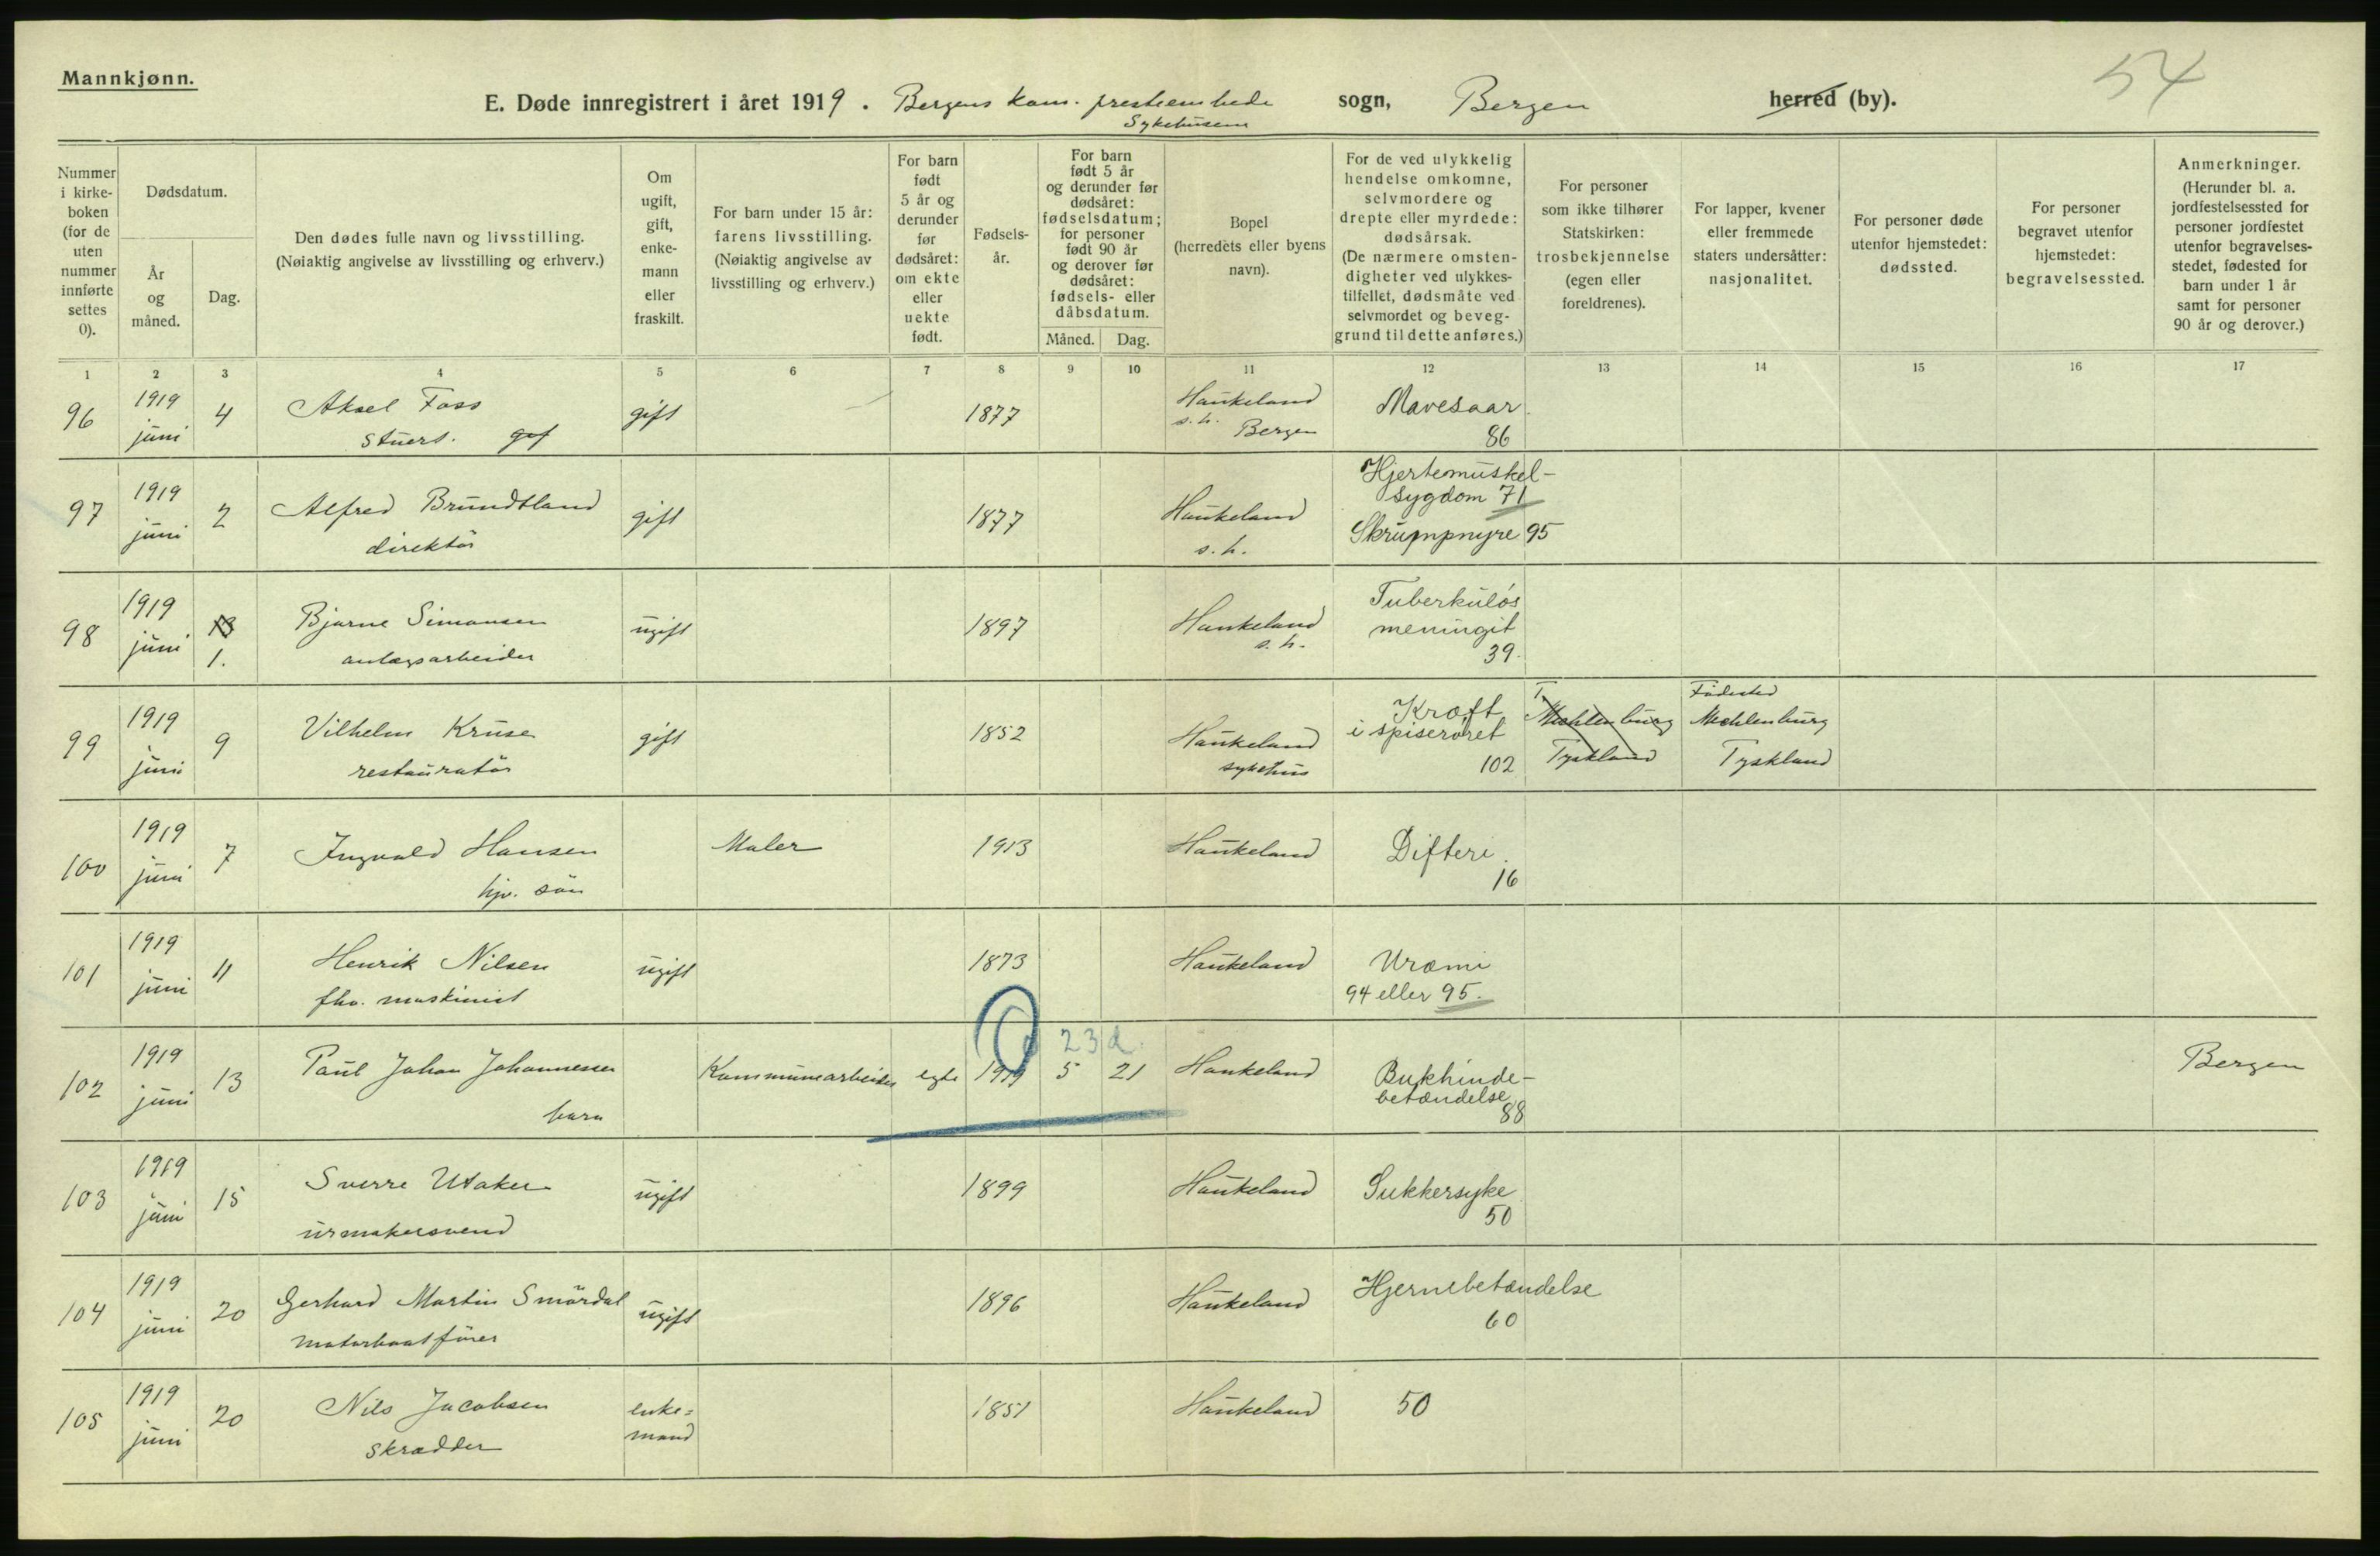 Mannkjønn.
54
E. Døde innregistrert i året 1919. Bergens kom. presteembede sogn, Bergen herred (by).
Sykehusene
Nummer i kirke-boken (for de uten nummer innførte settes 0).
Dødsdatum.
År og måned.
Dag.
Den dødes fulle navn og livsstilling.
(Nøiaktig angivelse av livsstilling og erhverv.)
Om ugift, gift, enke-mann eller fraskilt.
For barn under 15 år: farens livsstilling. (Nøiaktig angivelse av livsstilling og erhverv.)
For barn født 5 år og derunder før dødsåret: om ekte eller uekte født.
Fødsels-år.
For barn født 5 år og derunder før dødsåret: fødselsdatum; for personer født 90 år og derover før dødsåret: fødsels- eller dåbsdatum.
Måned. Dag.
Bopel (herredets eller byens navn).
For de ved ulykkelig hendelse omkomne, selvmordere og drepte eller myrdede: dødsårsak. (De nærmere omsten-digheter ved ulykkes-tilfellet, dødsmåte ved selvmordet og beveg-grund til dette anføres.)
For personer som ikke tilhører Statskirken: trosbekjennelse (egen eller foreldrenes).
For lapper, kvener eller fremmede staters undersåtter: nasjonalitet.
For personer døde utenfor hjemstedet: dødssted.
For personer begravet utenfor hjemstedet: begravelsessted.
Anmerkninger. (Herunder bl. a. jordfestelsessted for personer jordfestet utenfor begravelses-stedet, fødested for barn under 1 år samt for personer 90 år og derover.)
1 2 3 4 5 6 7 8 9 10 11 12 13 14 15 16 17
96 1919 juni 4 Aksel Foss gift 1877 Haukeland s.h. Bergen Mavesaar. 86
stuert.
97 1919 juni 2 Alfred Brundtland gift 1877 Haukeland s.h. Hjertemuskel-sygdom 71 Skrumpnyre 95
direktör
98 1919 juni 13 1. Bjarne Simonsen ugift 1897 Haukeland s.h. Tuberkuløs meningit 39.
anlægsarbeider
99 1919 juni 9 Vilhelm Kruse gift 1852 Haukeland sykehus Kræft i spiserøret 102 Mechlenburg Tyskland Födested Mechlenburg Tyskland
restauratör
100 1919 juni 7 Ingvald Hansen Maler 1913 Haukeland Difteri. 16
hjv. sön
101 1919 juni 11 Henrik Nilsen ugift 1873 Haukeland Uræmi 94 eller 95.
fhv. maskinist
102 1919 juni 13 Paul Johan Johannessen Kommunearbeider egte 1919 23 d. 5 21 Haukeland Bukhinde-betændelse 88 Bergen
barn
103 1919 juni 15 Sverre Utaker ugift 1899 Haukeland Sukkersyke 50
urmakersvend
104 1919 juni 20 Gerhard Martin Smördal ugift 1896 Haukeland Hjernebetændelse 60
motorbaatförer
105 1919 juni 20 Nils Jacobsen enke=mand 1851 Haukeland 50
skrædder